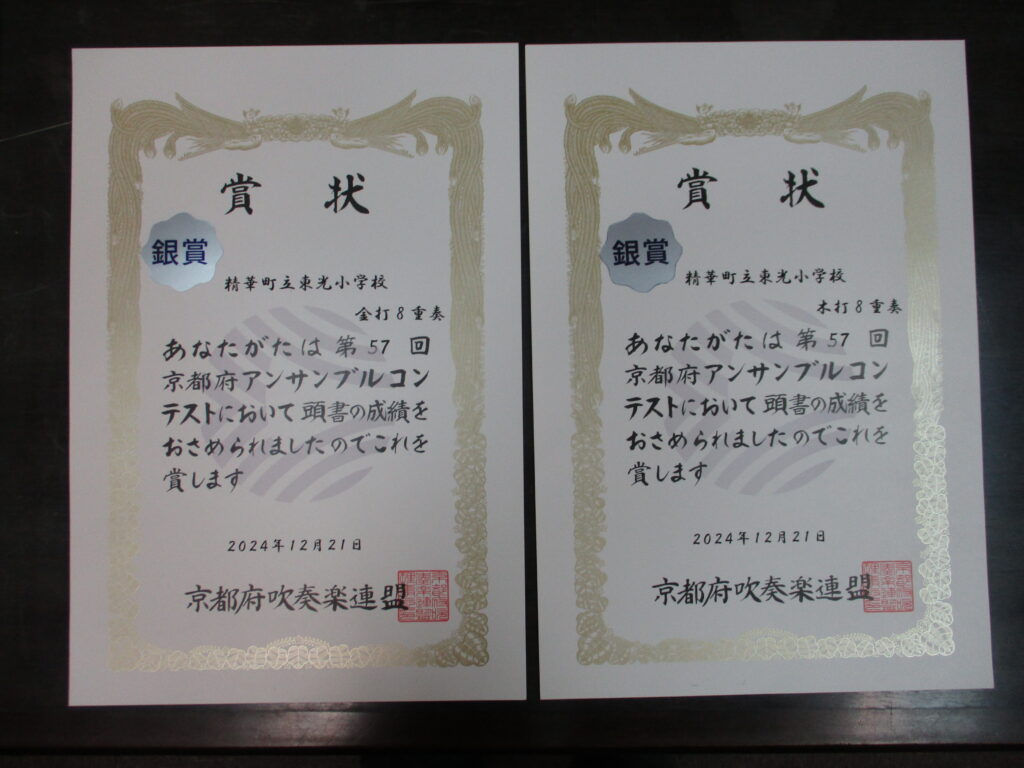 賞 状
銀賞
精華町立東光小学校
金打8重奏
あなたがたは第57回
京都府アンサンブルコン
テストにおいて頭書の成績を
おさめられましたのでこれを
賞します
2024年12月21日
京都府吹奏楽連盟
賞 状
銀賞
精華町立東光小学校
木打8重奏
あなたがたは第57回
京都府アンサンブルコン
テストにおいて頭書の成績を
おさめられましたのでこれを
賞します
2024年12月21日
京都府吹奏楽連盟